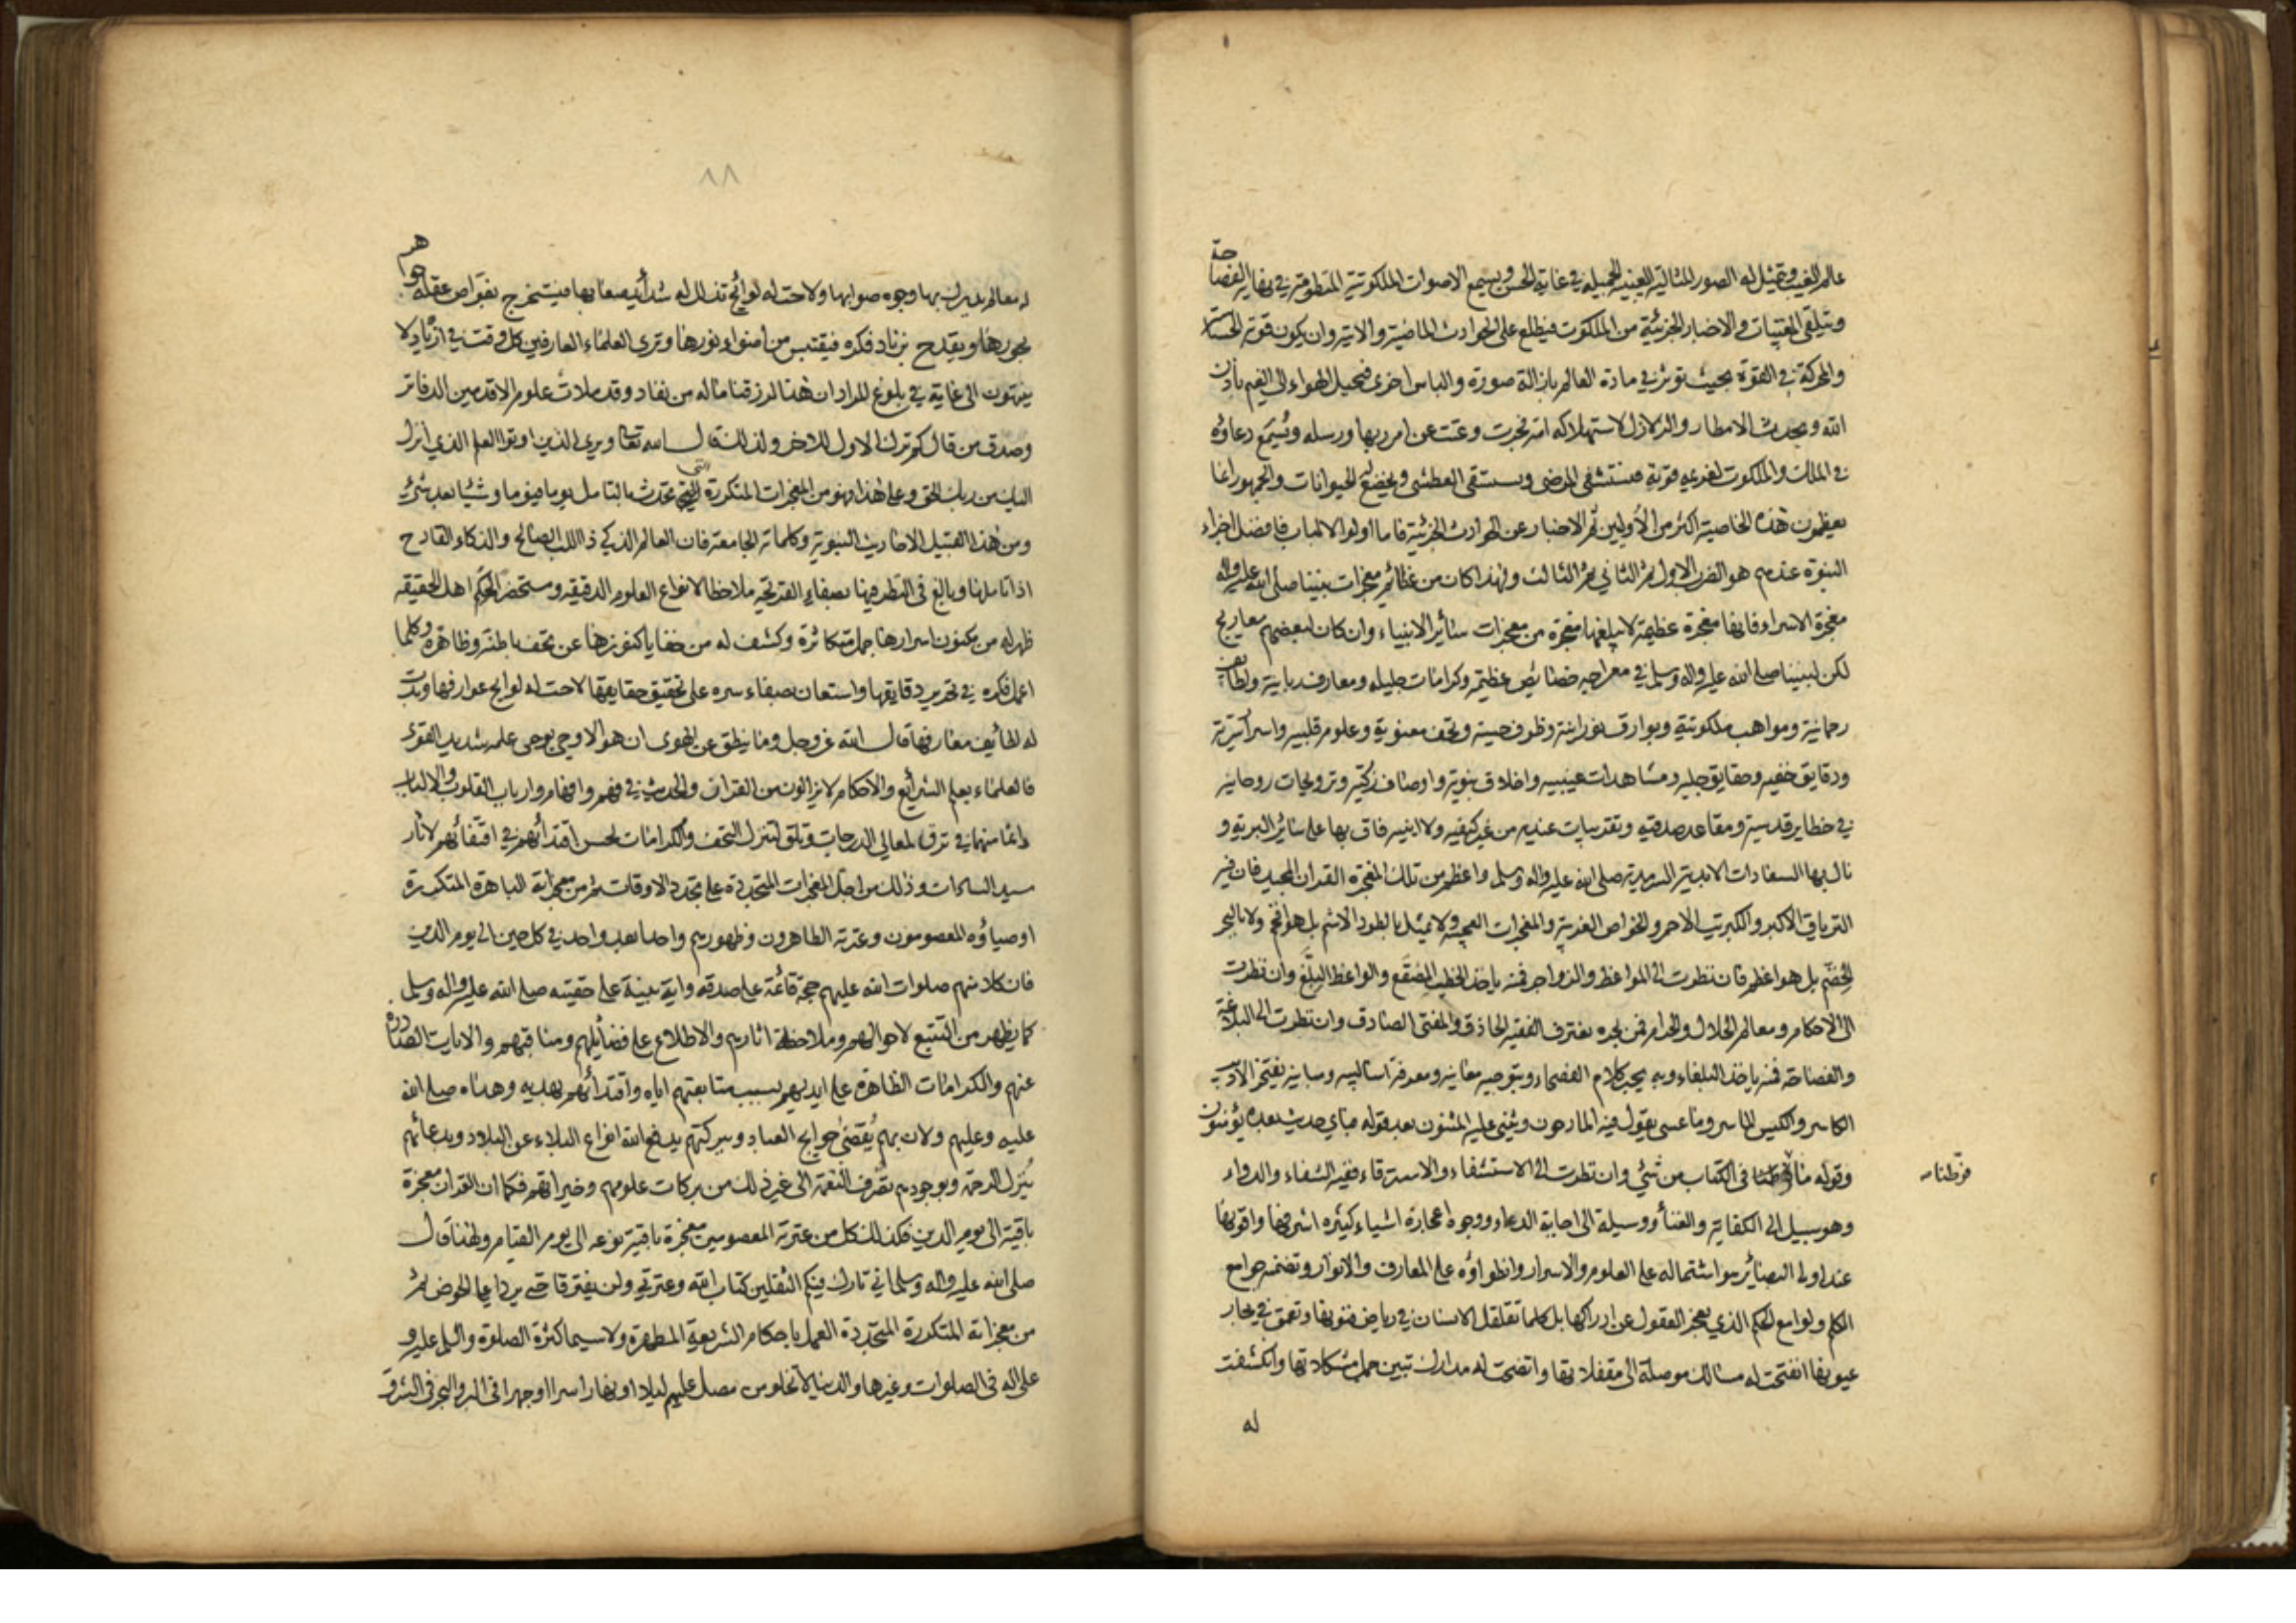 عالم الغيب وتمثيل له الصور المثالية الغيبية الجميلة في غاية الحسن ويسمع الاصوات الملكوتية المنظومة في نهاية الفصاحة
ويتلقى المغيبات والاخبار الجزئية من الملكوت فيطلع على الحوادث الماضية والاتية وان يكون قوته الحساسة
والمحركة في القوة بحيث تؤثر في مادة العالم بازالة صورة والباس اخرى فيحيل الهواء الى الغيم باذن
الله ويحدث الامطار والزلازل لاستهلاك امة تجبرت وعتت عن امر ربها ورسله ويسمع دعاؤه
في الملك والملكوت لغريه قوته فيستشفى المرضى ويستسقى العطشى ويخضع له الحيوانات والجمهور انما
يعظمون هذه الخاصية اكثر من الاوليين ثم الاخبار عن الحوادث الجزئية فاما اولوا الالباب فافضل اجزاء
النبوة عندهم هو الضرب الاول ثم الثاني ثم الثالث ولهذا كان من عظائم معجزات نبينا صلى الله عليه واله
معجزة الاسراء فانها معجزة عظيمة لا يبلغها معجزة من معجزات سائر الانبياء وان كان لبعضهم معاريج
لكن لنبينا صلى الله عليه واله وسلم في معراجه خصائص عظيمة وكرامات جليلة ومعارف ربانية ولطائف
رحمانية ومواهب ملكوتية وبوارق نورانية وظروف حسية وتحف معنوية وعلوم قلبية واسرار سرية
ودقايق خفيه وحقايق جليه ومشاهدات غيبيه واخلاق نبوية واوصاف زكية وترويحات روحانية
في حظاير قدسية ومقاعد صدقية وتقريبات عنديه من غير كيفيه ولا اينيه فاق بها على سائر البرية و
نال بها السعادات الابدية السرمدية صلى الله عليه واله وسلم واعظم من تلك المعجزة القران المجيد فان فيه
الترياق الاكبر والكبريت الاحمر والخواص الغريبة والمعجزات العجيبة ولا يمثل بالطود الاشم بل هو افخم ولا بالبحر
الخضم بل هو اعظم فان نظرت الى المواعظ والزواجر فمنه ياخذ الخطيب المصقع والواعظ البلغ وان نظرت
الى الاحكام ومعالم الحلال والحرام فمن بحره يغترف الفقيه الحاذق والمفتى الصادق وان نظرت الى البلاغة
والفصاحة فمنه ياخذ البلغاء وبه يحبر كلام الفصحاء وبتوجيه معانيه ومعرفة اساليبه ومبانيه يفتخر الاديب
الكاسر والكيس الماسر وما عسى يقول فيه المادحون ويثني عليه المثنون بعد قوله فباي حديث بعده يؤمنون
وقوله ما فرطنا في الكتاب من شيء وان نظرت الى الاستشفاء والاسترقاء ففيه الشفاء والدواء
فرطنا
وهو سبيل الى الكفاية والغناء ووسيلة الى اجابة الدعاء ووجوه اعجازه اشياء كثيره اشرفها واقويها
عند اولى البصائر هو اشتماله على العلوم والاسرار وانطواؤه على المعارف والانوار وتضمنه جوامع
الكلم ولوامع الحكم الذي يعجز العقول عن ادراكها بل كلما تقلقل الانسان في رياض فنونها وتعمق في بحار
عيونها انفتحت له مسالك موصلة الى مقفلاتها واتضحت له مدارك تبين حمل مشكلاتها وانكشفت
له
٨٨
له معالم يدرك بها وجوه صوابها ولاحت له لوائح تذلل له شدائد صعابها فيستخرج بغواص عقله جواهر
بحورها ويقدح بزناد فكره فيقتبس من اضواء نورها وترى العلماء العارفين كل وقت في ازدياد لا
ينتهون الى غاية في بلوغ المراد ان هذا لرزقنا ماله من نفاد وقد ملات علوم الاقدمين الدفاتر
وصدق من قال كم ترك الاول للاخر ولذلك قال الله تعالى ويرى الذين اوتوا العلم الذي انزل
اليك من ربك الحق وعلى هذا فهو من المعجزات المتكررة التي تحدث بالتامل يوما فيوما وشيئا بعد شيء
ومن هذا القبيل الاحاديث النبوية وكلماته الجامعة فان العالم الذكي ذا اللب الصالح والذكاء القادح
اذا تاملها وبالغ في النظر فيها بصفاء القريحة ملاحظا لانواع العلوم الدقيقه ومستحضرا لحكم اهل الحقيقه
ظهر له من مكنون اسرارها جمل متكاثرة وكشف له من خفايا كنوزها عن تحف باطنة وظاهرة وكلما
اعمل فكره في تحرير دقايقها واستعان بصفاء سره على تحقيق حقايقها لاحت له لوايح عوارفها وبدت
له لطائف معارفها قال الله عز وجل وما ينطق عن الهوى ان هو الا وحي يوحى علمه شديد القوى
فالعلماء بعلم الشرائع والاحكام لا يزالون من القران والحديث في فهم وافهام وارباب القلوب والالباب
دائما منهما في ترق لمعالي الدرجات وتلق لتنزل التحف والكرامات لحسن اقتدائهم في اقتفائهم لاثار
سيد السادات وذلك من اجل المعجزات المتجددة على تجدد الاوقات ثم من معجزاته الباهرة المتكررة
اوصياؤه المعصومون وعترته الطاهرون وظهورهم واحدا بعد واحد في كل حين الى يوم الدين
فان كلا منهم صلوات الله عليهم حجة قائمة على صدقه واية بينة على حقيته صلى الله عليه واله وسلم
كما يظهر من التتبع لاحوالهم وملاحظة اثارهم والاطلاع على فضائلهم ومناقبهم والايات الصادرة
عنهم والكرامات الظاهرة على ايديهم بسبب متابعتهم اياه واقتدائهم بهديه وهداه صلى الله
عليه وعليهم ولان بهم يقضى حوايج العباد وببركتهم يدفع الله انواع البلاء عن البلاد وبدعائهم
ينزل الرحمة وبوجودهم يصرف النقمة الى غير ذلك من بركات علومهم وخيراتهم فكما ان القران معجزة
باقية الى يوم الدين فكذلك كل من عترته المعصومين معجزة باقية نوعه الى يوم القيام ولهذا قال
صلى الله عليه واله وسلم اني تارك فيكم الثقلين كتاب الله وعترتي ولن يفترقا حتى يردا على الحوض ثم
من معجزاته المتكررة المتجددة العمل باحكام الشريعة المطهرة ولاسيما كثرة الصلوة والسلم عليه و
على اله في الصلوات وغيرها والدنيا لا تخلو من مصل عليهم ليلا او نهارا سرا او جهرا في البر والبحر في الشرق